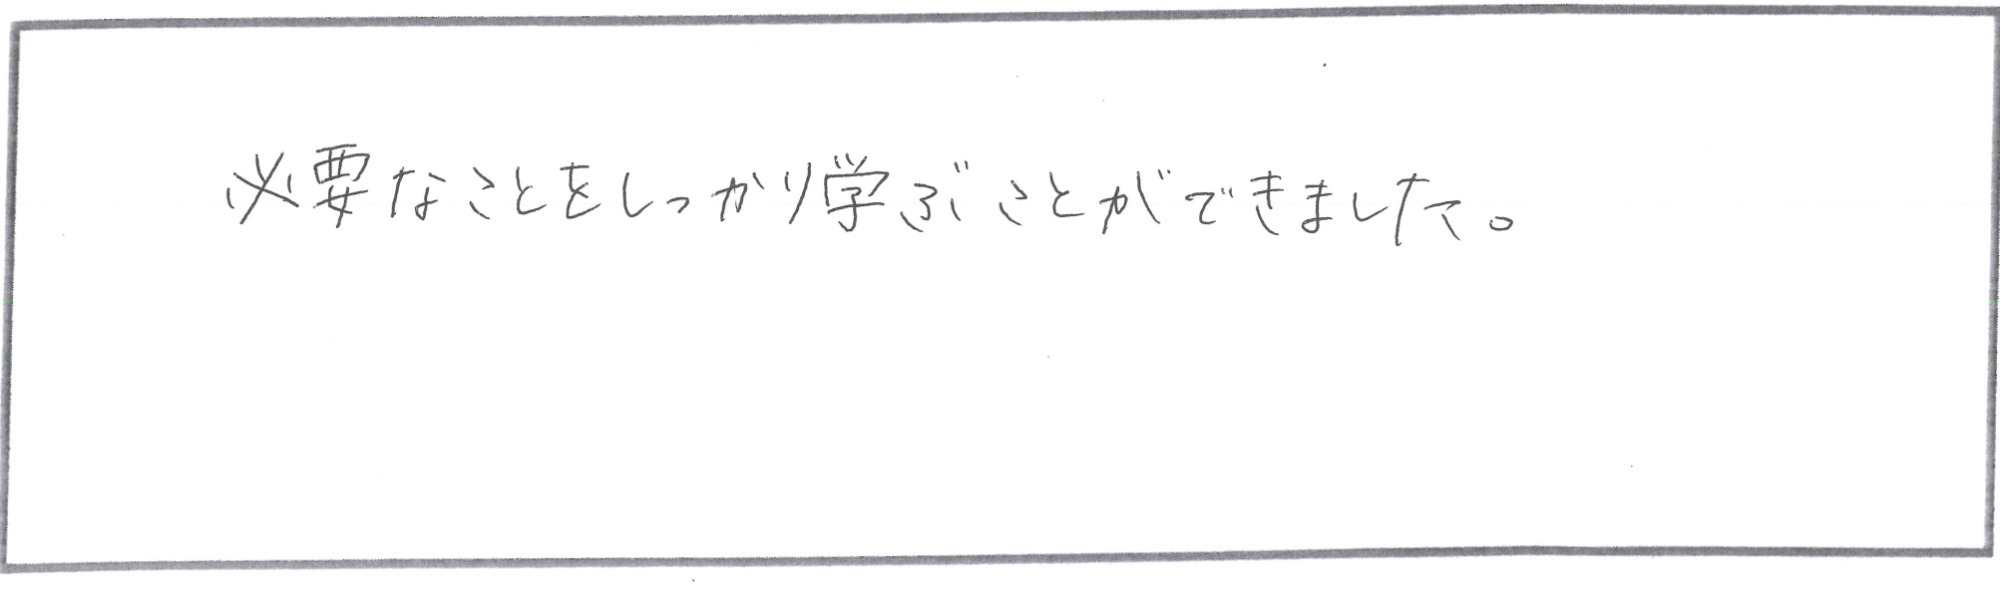 必要なことをしっかり学ぶことができました。